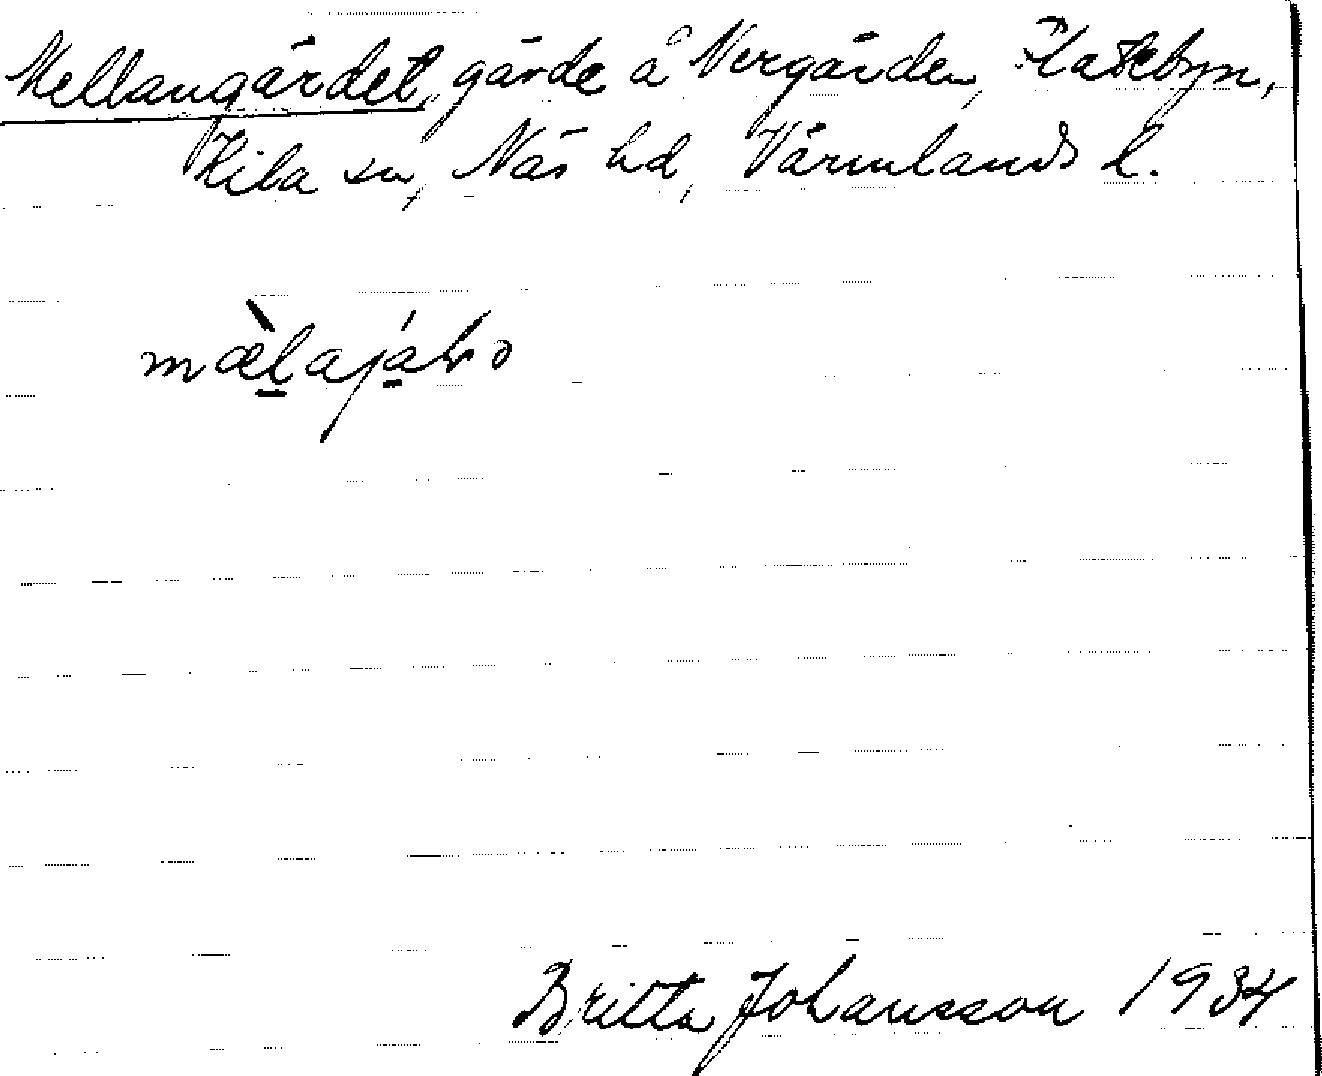 Mellangärdet, gärde å Nergården, Katebyn,
Kila sn, Näs hd, Värmlands l.
mæ̀lajáḷo
Britta Johansson 1934